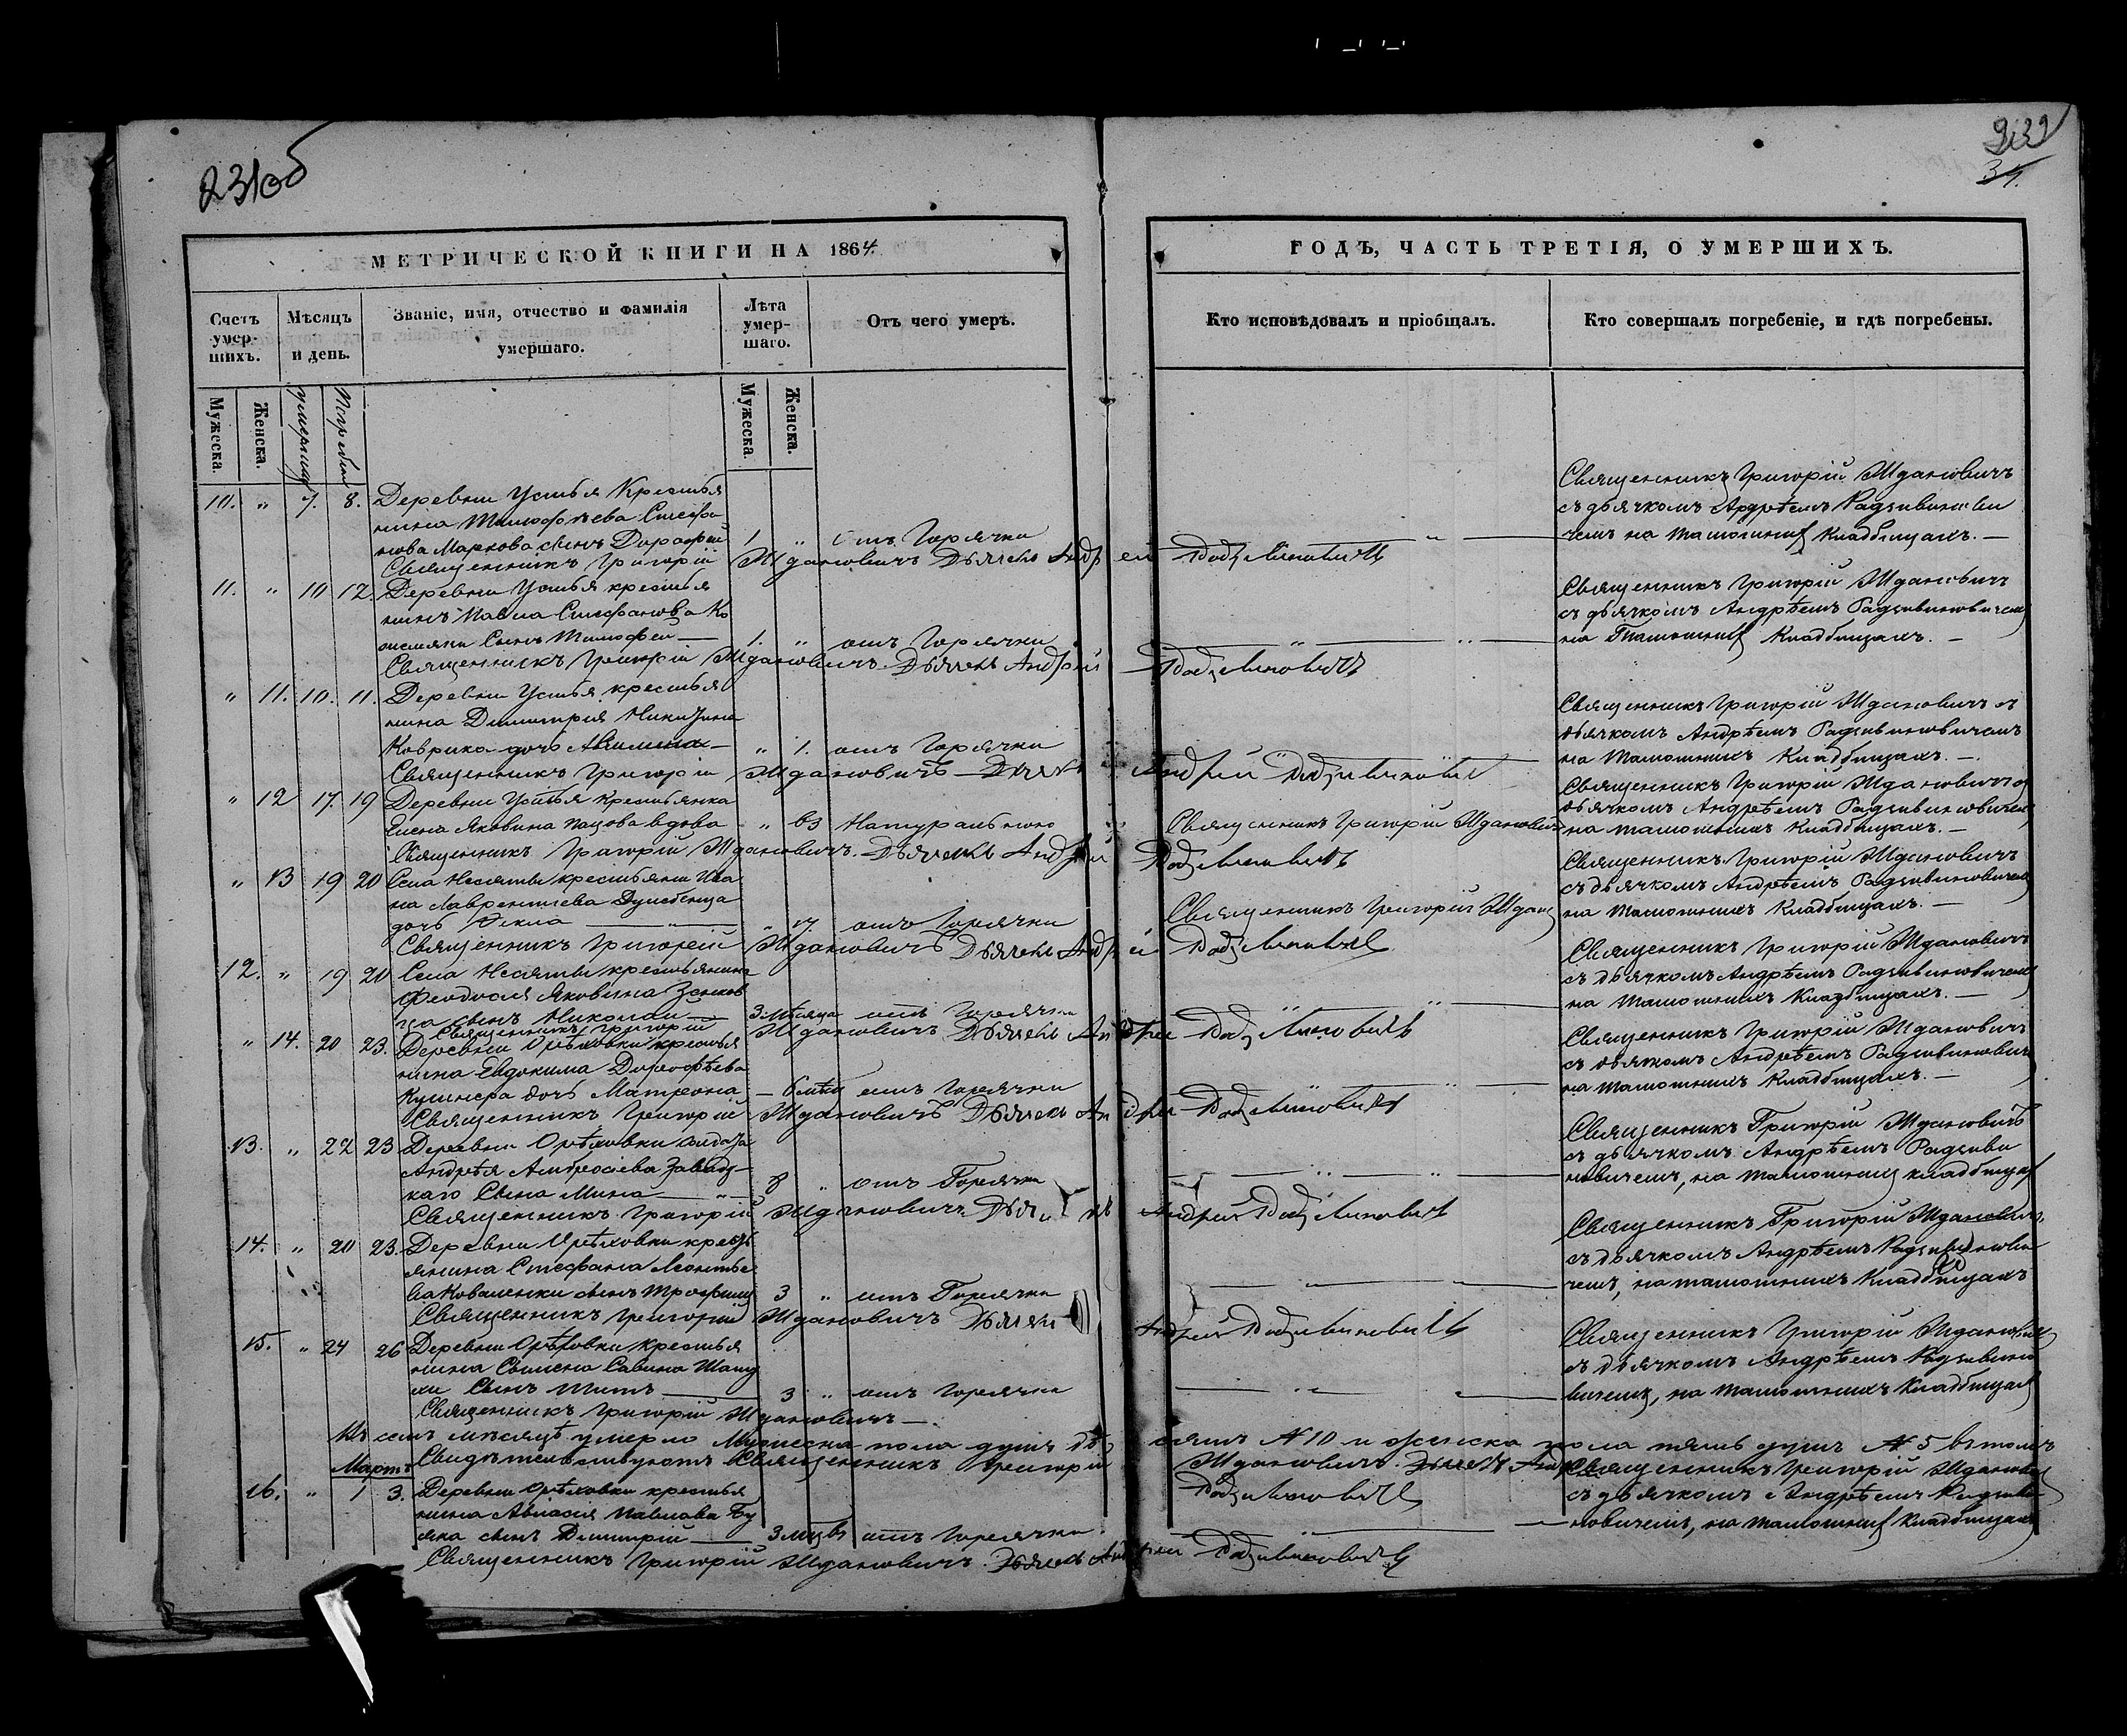 231об
232
34.
МЕТРИЧЕСКОЙ КНИГИ НА 1864
ГОДЪ, ЧАСТЬ ТРЕТІЯ, О УМЕРШИХЪ.
Счетъ умер-
шихъ.
Мѣсяцъ
и день.
Званіе, имя, отчество и фамилія
умершаго.
Лѣта
умер-
шаго.
Отъ чего умеръ.
Кто исповѣдовалъ и пріобщалъ.
Кто совершалъ погребеніе, и гдѣ погребены.
Мужеска.
Женска.
Мужеска.
Женска.
10. " 7. 8. Деревни Устья Крестья
нина Тимофѣева Стефа
нова Маркова сынъ Дорофей 1 " отъ Горячки
Священникъ Григорій Ждановичъ Дьячекъ Андрей Радзивиновичъ
Священникъ Григорій Ждановичъ
съ дьячкомъ Андрѣемъ Радзивинови
чемъ на тамошних Кладбищахъ. —
11. " 10 12. Деревни Устья крестья
нинъ Павла Стефанова Ко
сынъ Тимофей — 1. " отъ Горячки
Священникъ Григорій Ждановичъ Дьячекъ Андрей Радзивиновичъ
Священникъ Григорій Ждановичъ
съ дьячкомъ Андрѣемъ Радзивиновичемъ
на Тамошних Кладбищахъ. —
" 11. 10. 11. Деревни Устья крестья
нина Димитрія Никитина
Коврика дочь — " 1. отъ Горячки
Священникъ Григорій Ждановичъ Дьячекъ Андрей Радзивиновичъ
Священникъ Григорій Ждановичъ съ
дьячкомъ Андрѣемъ Радзивиновичемъ
на тамошнихъ Кладбищахъ. —
" 12 17. 19 Деревни Устья крестьянка
Елена Яковина вдова " 63 Натурально
Священникъ Григорій Ждановичъ
Священникъ Григорій Ждановичъ Дьячекъ Андрей Радзивиновичъ
Священникъ Григорій Ждановичъ съ
дьячкомъ Андрѣемъ Радзивиновичемъ
на тамошнихъ Кладбищахъ. —
" 13 19 20 Села Несяты крестьяни Ива
на Лаврентіева
дочь Фекла — " 17. отъ Горячки
Священникъ Григорій Ждан
Священникъ Григорій Ждановичъ Дьячекъ Андрей Радзивиновичъ
Священникъ Григорій Ждановичъ
съ дьячкомъ Андрѣемъ Радзивиновичемъ
на тамошнихъ Кладбищахъ. —
12. " 19 20 Села Несяты крестьянина
Феодосія Яковина Зенков
ца сынъ Николай — 3 мѣсяца отъ Горячки
Священникъ Григорій Ждановичъ Дьячекъ Андрей Радзивиновичъ
Священникъ Григорій Ждановичъ
съ дьячкомъ Андрѣемъ Радзивиновичемъ
на тамошнихъ Кладбищахъ. —
" 14. 20 23. Деревни Орѣховки крестья
нина Евдокима Дорофѣева
Кушнера дочь Матрона — 6 отъ Горячки
Священникъ Григорій Ждановичъ Дьячекъ Андрей Радзивиновичъ
Священникъ Григорій Ждановичъ
съ дьячкомъ Андрѣемъ Радзивинович
на тамошнихъ Кладбищахъ. —
13. " 22 23 Деревни Орѣховки солдата
Андрѣя Амбросіева Завад
каго Сына Мина — 8 " отъ Горячки
Священникъ Григорій Ждановичъ Дьячекъ Андрей Радзивиновичъ
Священникъ Григорій Ждановичъ
съ дьячкомъ Андрѣемъ Радзиви
новичемъ, на тамошних кладбищах
14. " 20 23. Деревни Орѣховки кресть
янина Стефана Леонтье
ва Коваленки сынъ Трофимъ 3 " отъ Горячки
Священникъ Григорій Ждановичъ Дьячекъ Андрей Радзивиновичъ
Священникъ Григорій Ждановичъ,
съ дьячкомъ Андрѣемъ Радзивинови
чемъ, на тамошнихъ Кладбищахъ
15. " 24 26 Деревни Орѣховки крестья
нина Семена Савина
сынъ Титъ — 3 " отъ Горячки
Священникъ Григорій Ждановичъ —
Священникъ Григорій Ждановичъ
съ дьячкомъ Андрѣемъ Радзивино
вичемъ, на тамошнихъ Кладбищах
Въ семъ мѣсяцѣ умерло Мужеска пола душъ де сять № 10 и женска пола пять душъ № 5 въ томъ
Свидѣтельствуютъ Священникъ Григорій Ждановичъ Дьячекъ Андрей
Радзивиновичъ
Мартъ
16. " 1 3. Деревни Орѣховки крестья
нина Павлова Бу
яка сынъ Димитрій — 3 отъ Горячки
Священникъ Григорій Ждановичъ Дьячекъ Андрей Радзивиновичъ
Священникъ Григорій Ждановичъ
съ дьячкомъ Андрѣемъ Радзиви
новичемъ, на тамошних Кладбищахъ